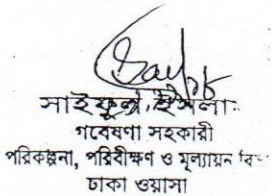 সাইফুল ইসলা
গবেষণা সহকারী
পরিকল্পনা, পরিবীক্ষণ ও মূল্যায়ন বি
ঢাকা ওয়াসা